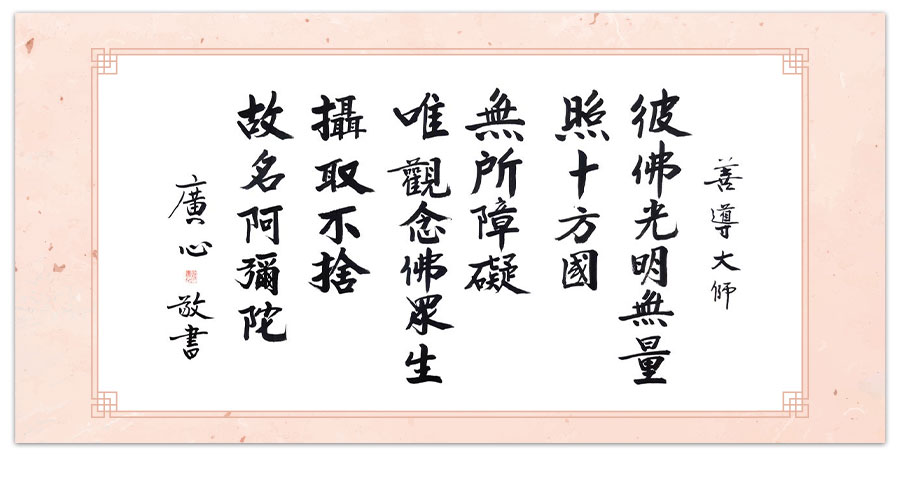 善導大師
彼佛光明無量
照十方國
無所障礙
唯觀念佛眾生
攝取不捨
故名阿彌陀
廣心敬書